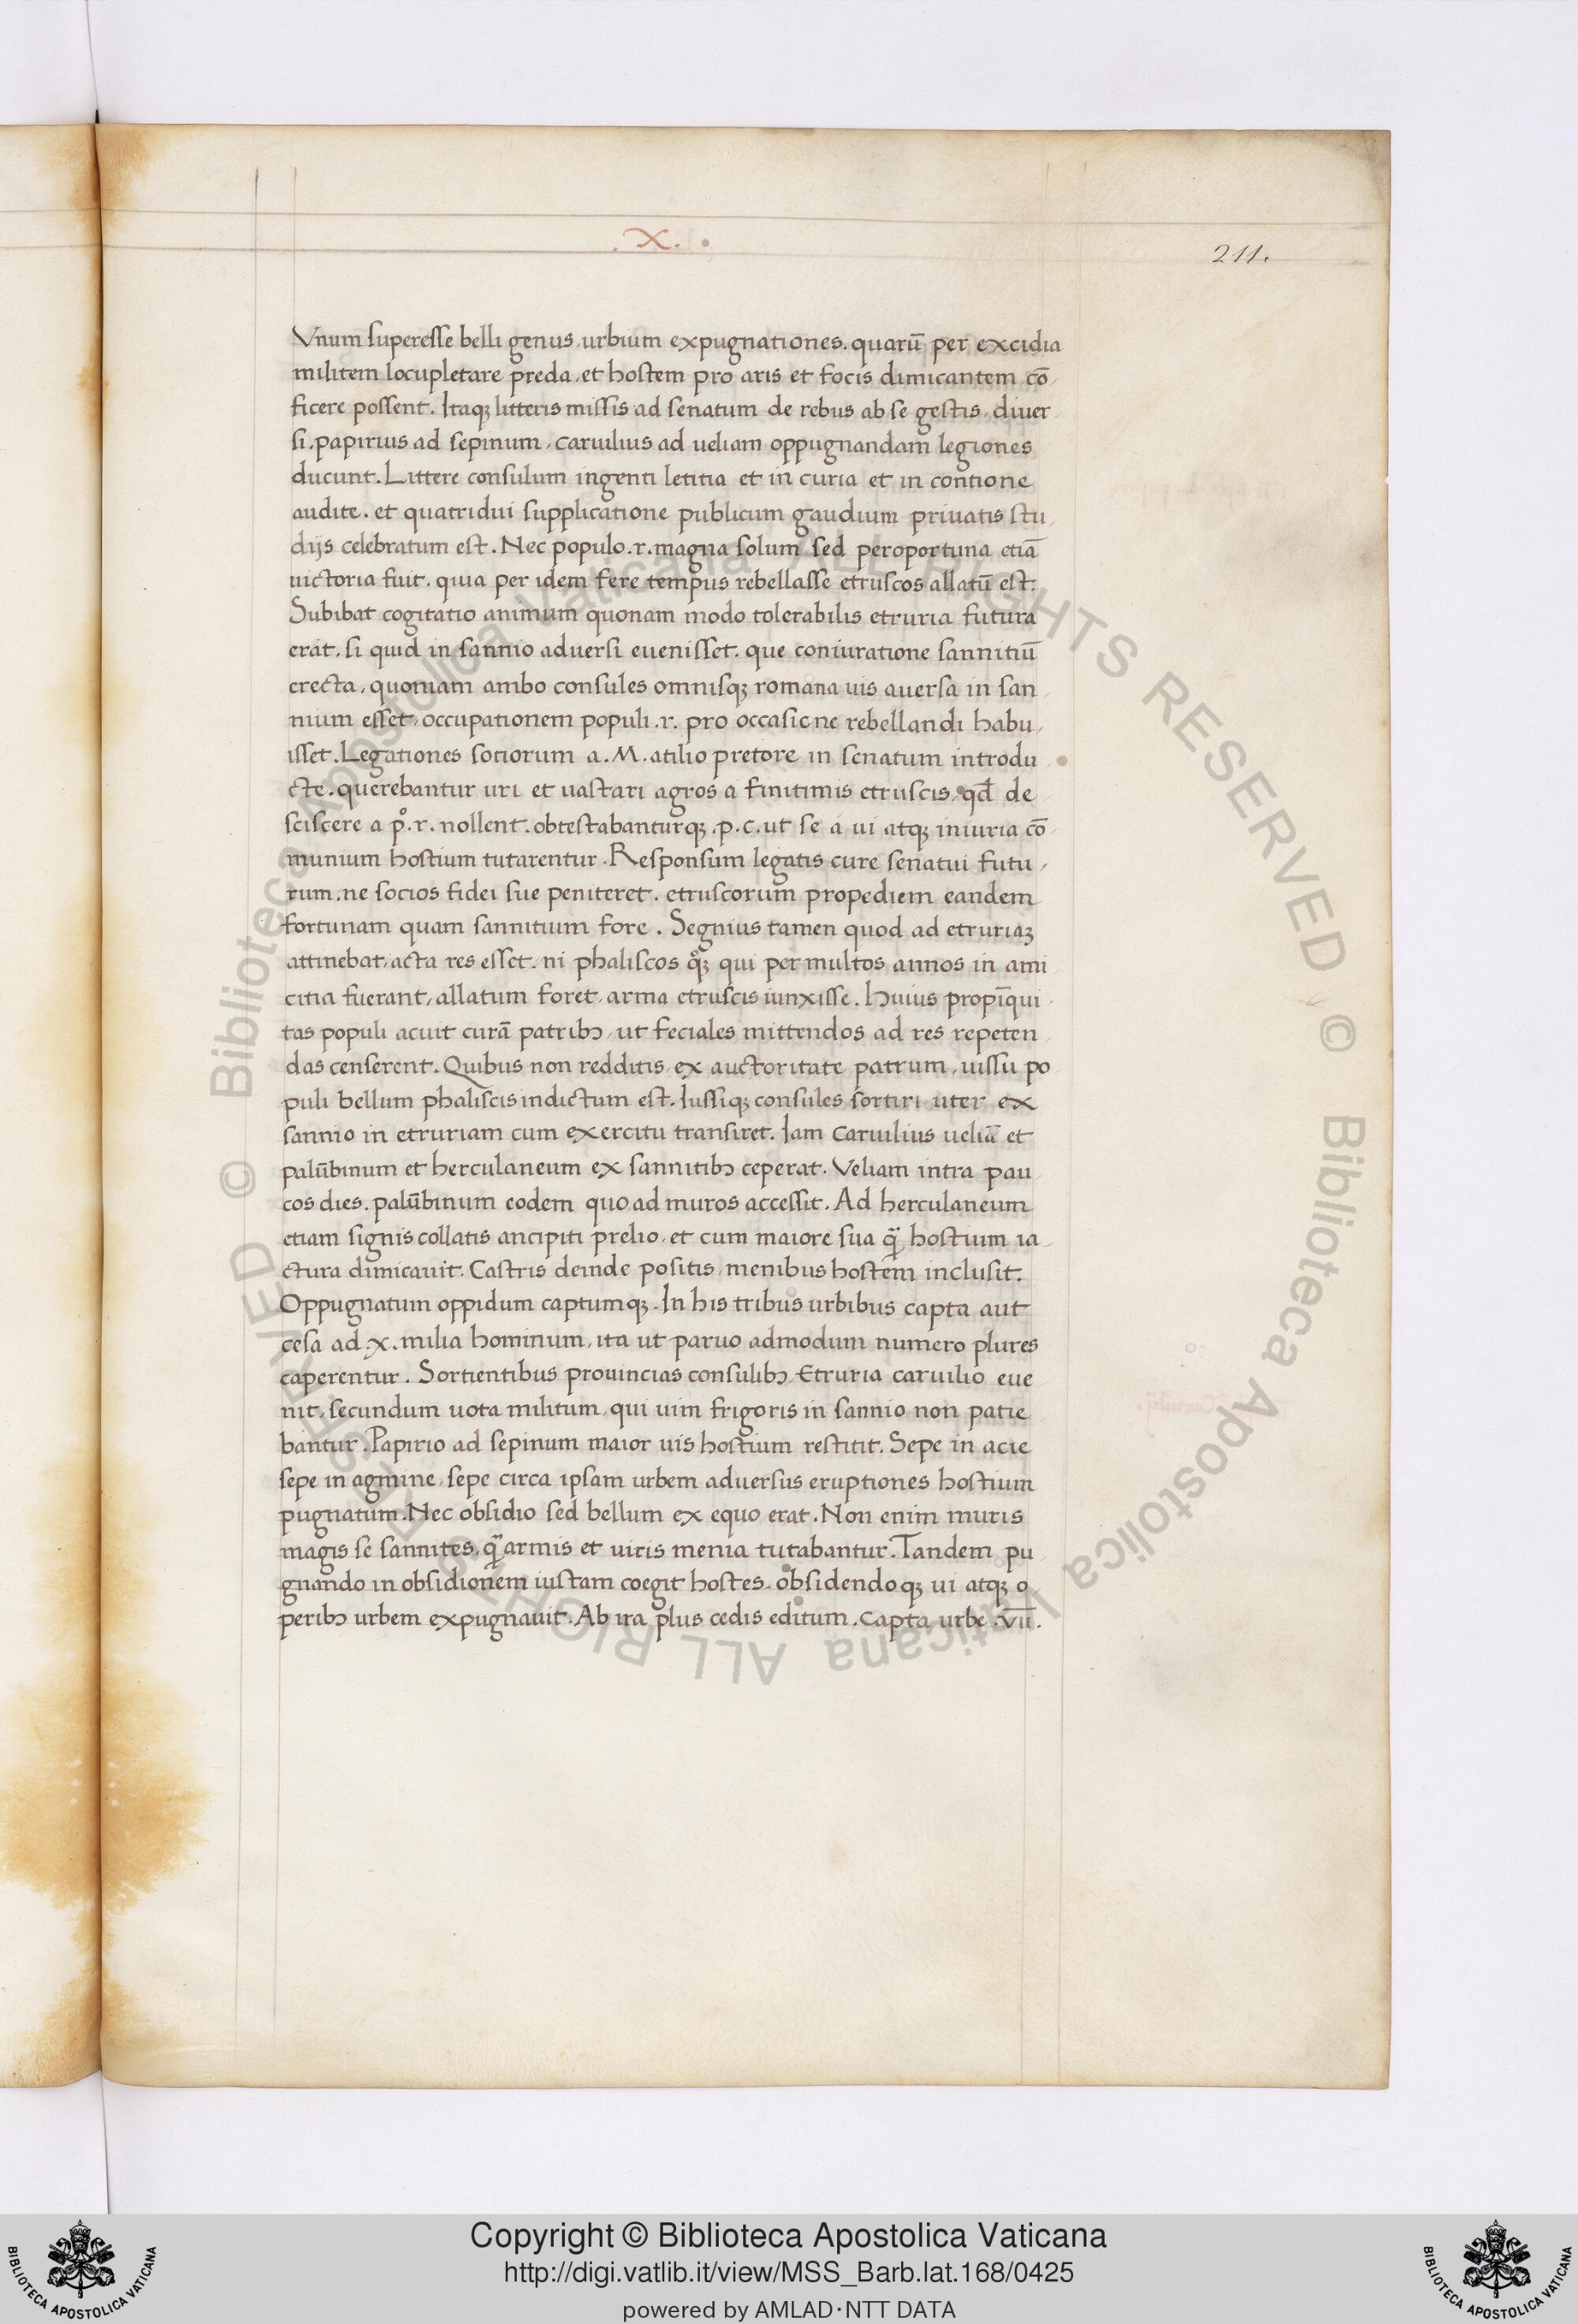 .X.
211.
Vnum superesse belli genus, urbium expugnationes. quarū per excidia
militem locupletare preda, et hostem pro aris et focis dimicantem cō,
ficere possent. Itaqꝫ litteris missis ad senatum de rebus ab se gestis, diuer
si. papirius ad sepinum, caruilius ad ueliam oppugnandam legiones
ducunt. Littere consulum ingenti letitia et in curia et in contione
audite. et quatridui supplicatione publicum gaudium priuatis stu,
dijs celebratum est. Nec populo .r. magna solum sed peroportuna etiā
uictoria fuit. quia per idem fere tempus rebellasse etruscos allatū est.
Subibat cogitatio animum quonam modo tolerabilis etruria futura
erat, si quid in sannio aduersi euenisset. que coniuratione sannitiū
erecta, quoniam ambo consules omnisqꝫ romana uis auersa in san
nium esset, occupationem populi .r. pro occasione rebellandi habu,
isset. Legationes sotiorum a .M. atilio pretore in senatum introdu
cte. querebantur uri et uastari agros a finitimis etruscis, qđ de
sciscere a p̊. r. nollent. obtestabanturqꝫ .p.c. ut se a ui atqꝫ iniuria cō
munium hostium tutarentur. Responsum legatis cure senatui futu,
rum. ne socios fidei sue peniteret. etruscorum propediem eandem
fortunam quam sannitium fore. Segnius tamen quod ad etruriaꝫ
attinebat, acta res esset. ni phaliscos qͦꝫ qui per multos annos in ami
citia fuerant, allatum foret, arma etruscis iunxisse. Huius propīqui
tas populi acuit curā patribꝫ, ut feciales mittendos ad res repeten
das censerent. Quibus non redditis, ex auctoritate patrum, iussu po
puli bellum phaliscis indictum est. Iussiqꝫ consules sortiri uter ex
sannio in etruriam cum exercitu transiret. Iam caruilius ueliā et
palūbinum et herculaneum ex sannitibꝫ ceperat. Veliam intra pau
cos dies. palūbinum eodem quo ad muros accessit. Ad herculaneum
etiam signis collatis ancipiti prelio, et cum maiore sua qᷓ hostium ia
ctura dimicauit. Castris deinde positis, menibus hostem inclusit.
Oppugnatum oppidum captumqꝫ. In his tribus urbibus capta aut
cesa ad .x. milia hominum, ita ut paruo admodum numero plures
caperentur. Sortientibus prouincias consulibꝫ, Etruria caruilio eue
nit, secundum uota militum, qui uim frigoris in sannio non patie
bantur. Papirio ad sepinum maior uis hostium restitit. Sepe in acie
sepe in agmine, sepe circa ipsam urbem aduersus eruptiones hostium
pugnatum. Nec obsidio sed bellum ex equo erat. Non enim muris
magis se sannites, qᷓ armis et uiris menia tutabantur. Tandem pu
gnando in obsidionem iustam coegit hostes, obsidendoqꝫ ui atqꝫ o
peribꝫ urbem expugnauit. Ab ira plus cedis editum. capta urbe .vīī.
© Biblioteca Apostolica Vaticana ALL RIGHTS RESERVED © Biblioteca Apostolica Vaticana ALL RIGHTS RESERVED
Copyright © Biblioteca Apostolica Vaticana
http://digi.vatlib.it/view/MSS_Barb.lat.168/0425
powered by AMLAD·NTT DATA
BIBLIOTECA APOSTOLICA VATICANA
BIBLIOTECA APOSTOLICA VATICANA